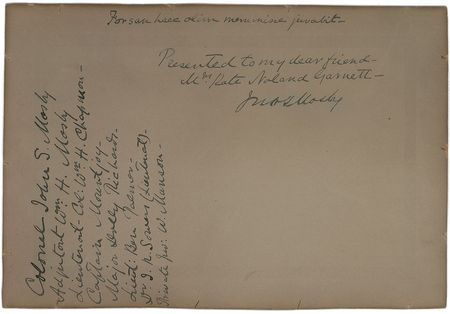 Forsan haec olim meminisse juvabit—
Presented to my dear friend—
Mrs Kate Noland Garnett—
Jno S Mosby
Colonel John S. Mosby
Adjutant Wm H. Mosby
Lieutenant-Col: Wm H. Chapman—
Captain Mountjoy—
Major Dolly Richards—
Lieut: Ben Palmer
Dr J. R. Sowers (Lieutenant)—
Private Jno: W. Munson—